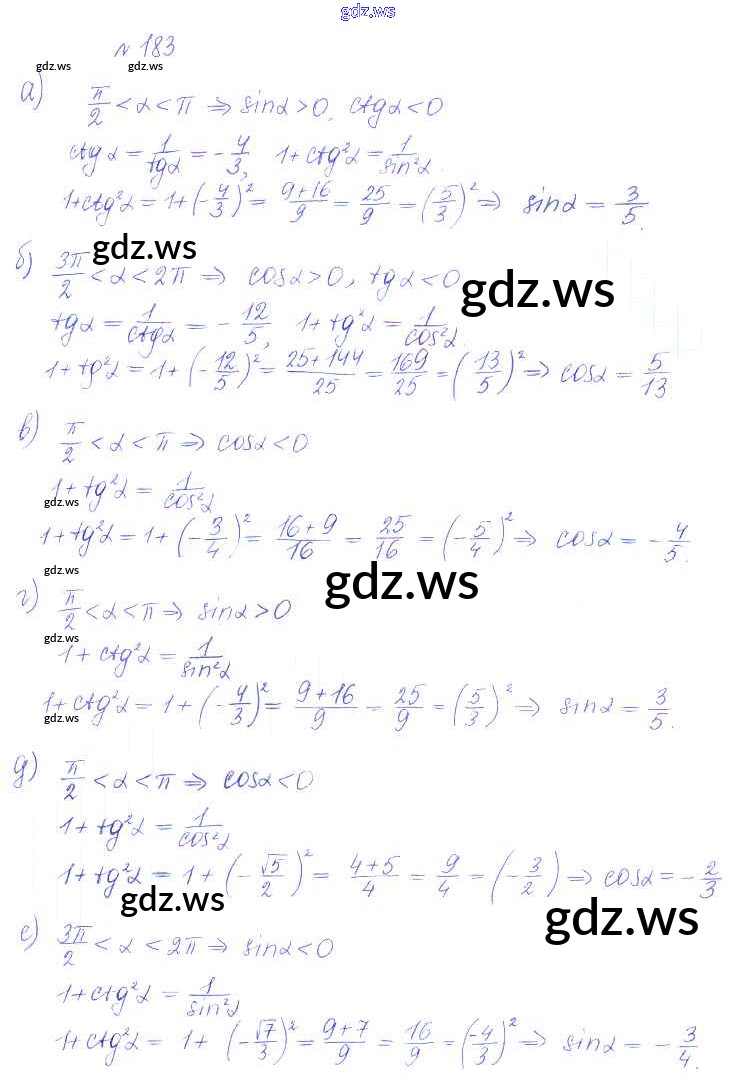 gdz.ws
№ 183
gdz.ws gdz.ws
а) π/2 < α < π ⇒ sinα > 0, ctgα < 0
ctg α = 1/tgα = -4/3, 1+ctg²α = 1/sin²α.
1+ctg²α = 1+(-4/3)² = (9+16)/9 = 25/9 = (5/3)² ⇒ sinα = 3/5.
gdz.ws
б) 3π/2 < α < 2π ⇒ cosα > 0, tgα < 0
gdz.ws
tgα = 1/ctgα = -12/5, 1+tg²α = 1/cos²α.
1+tg²α = 1+(-12/5)² = (25+144)/25 = 169/25 = (13/5)² ⇒ cosα = 5/13.
в) π/2 < α < π ⇒ cosα < 0
1+tg²α = 1/cos²α
gdz.ws
1+tg²α = 1+(-3/4)² = (16+9)/16 = 25/16 = (-5/4)² ⇒ cosα = -4/5.
gdz.ws gdz.ws
г) π/2 < α < π ⇒ sinα > 0
gdz.ws
1+ctg²α = 1/sin²α
1+ctg²α = 1+(-4/3)² = (9+16)/9 = 25/9 = (5/3)² ⇒ sinα = 3/5.
gdz.ws
д) π/2 < α < π ⇒ cosα < 0
1+tg²α = 1/cos²α
1+tg²α = 1+(-√5/2)² = (4+5)/4 = 9/4 = (-3/2)² ⇒ cosα = -2/3
gdz.ws gdz.ws
е) 3π/2 < α < 2π ⇒ sinα < 0
1+ctg²α = 1/sin²α
1+ctg²α = 1+(-√7/3)² = (9+7)/9 = 16/9 = (-4/3)² ⇒ sinα = -3/4.